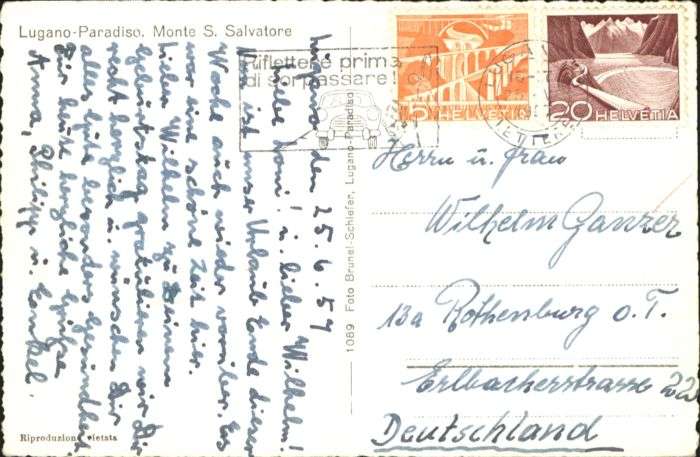 Lugano-Paradiso. Monte S. Salvatore
Riflettere prima
di sorpassare!
5
HELVETIA
20 HELVETIA
den 25.6.59
Liebe Toni! u. lieber Wilhelm!
Nun ist unser Urlaub Ende dieser
Woche auch wieder vorüber. Es
war eine schöne Zeit hier.
Lieber Wilhelm zu Deinem
Geburtstag gratulieren wir Dir
recht herzlich u. wünschen Dir
alles Gute besonders Gesundheit
Für heute herzliche Grüße
Anna, Philipp u. Enkel.
1089 Foto Brunel-Schiefer, Lugano-Paradiso
Riproduzione vietata
Herrn u. Frau
Wilhelm Ganzer
13a Rothenburg o. T.
Erlbacherstrasse 22
Deutschland